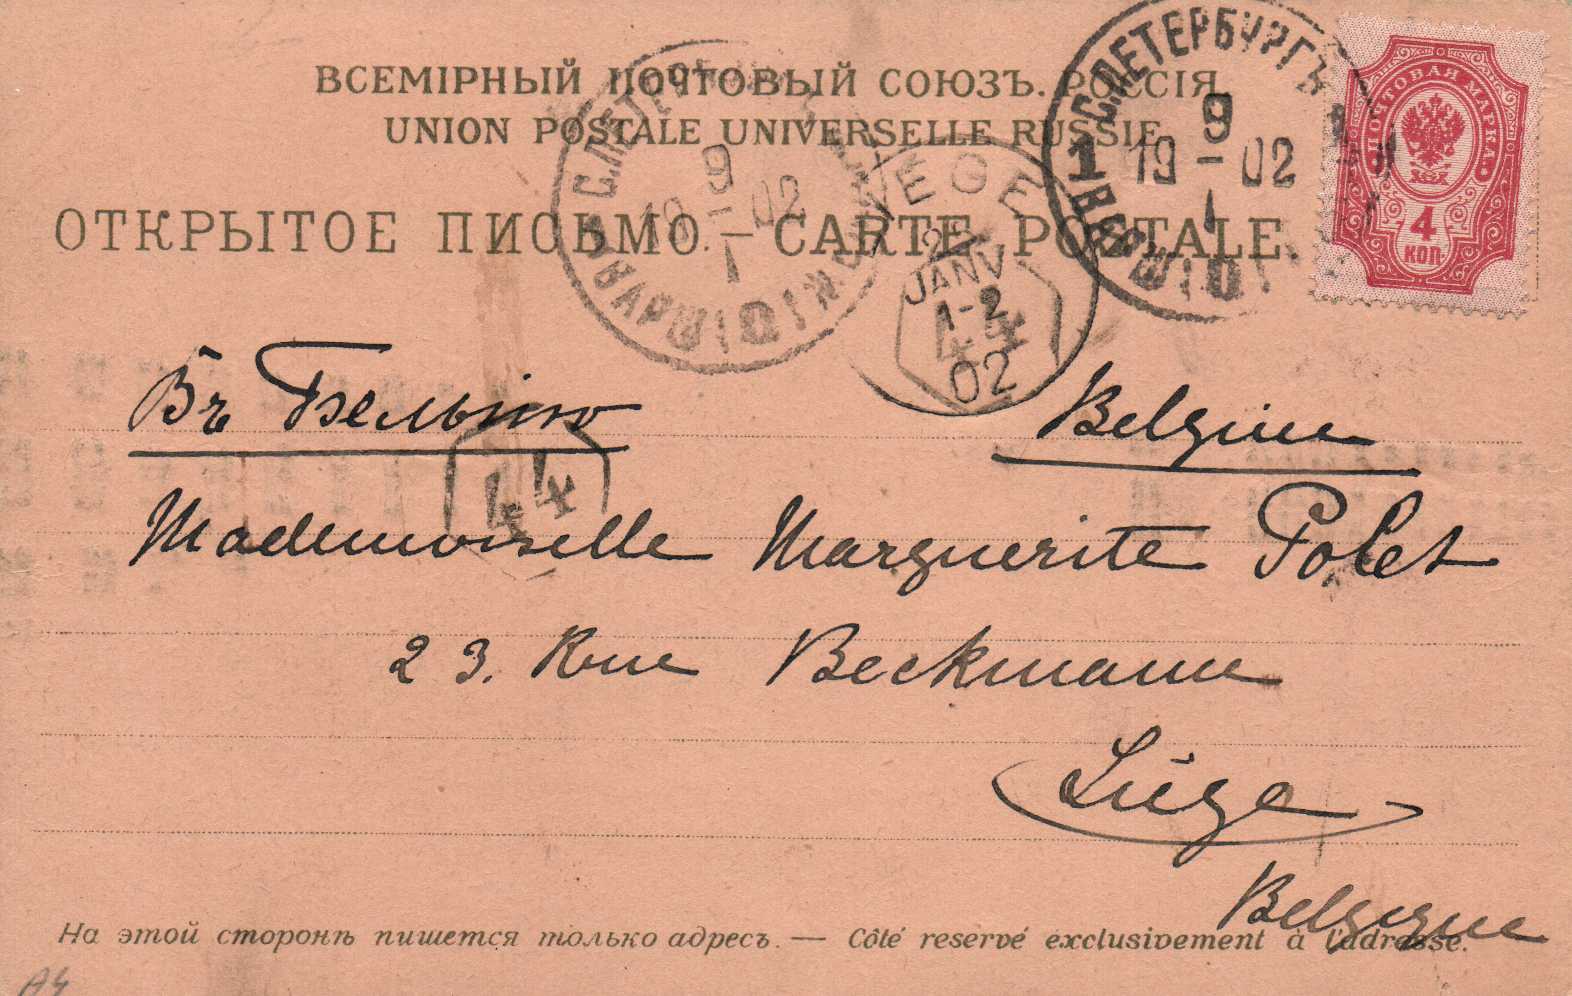 ВСЕМІРНЫЙ ПОЧТОВЫЙ СОЮЗЪ. РОССІЯ.
UNION POSTALE UNIVERSELLE RUSSIE
ОТКРЫТОЕ ПИСЬМО. — CARTE POSTALE.
С.ПЕТЕРБУРГЪ
9
19 – 02
1
1
ПОЧТОВАЯ МАРКА
4
КОП.
С.ПЕТЕРБУРГЪ
9
19 – 02
1
JANV
1-2
44
02
Въ Бельгію
Belgique
44
Mademoiselle Marguerite Polet
23. Rue Beckmann
Liège
Belgique
На этой сторонѣ пишется только адресъ. — Côté reservé exclusivement à l'adresse.